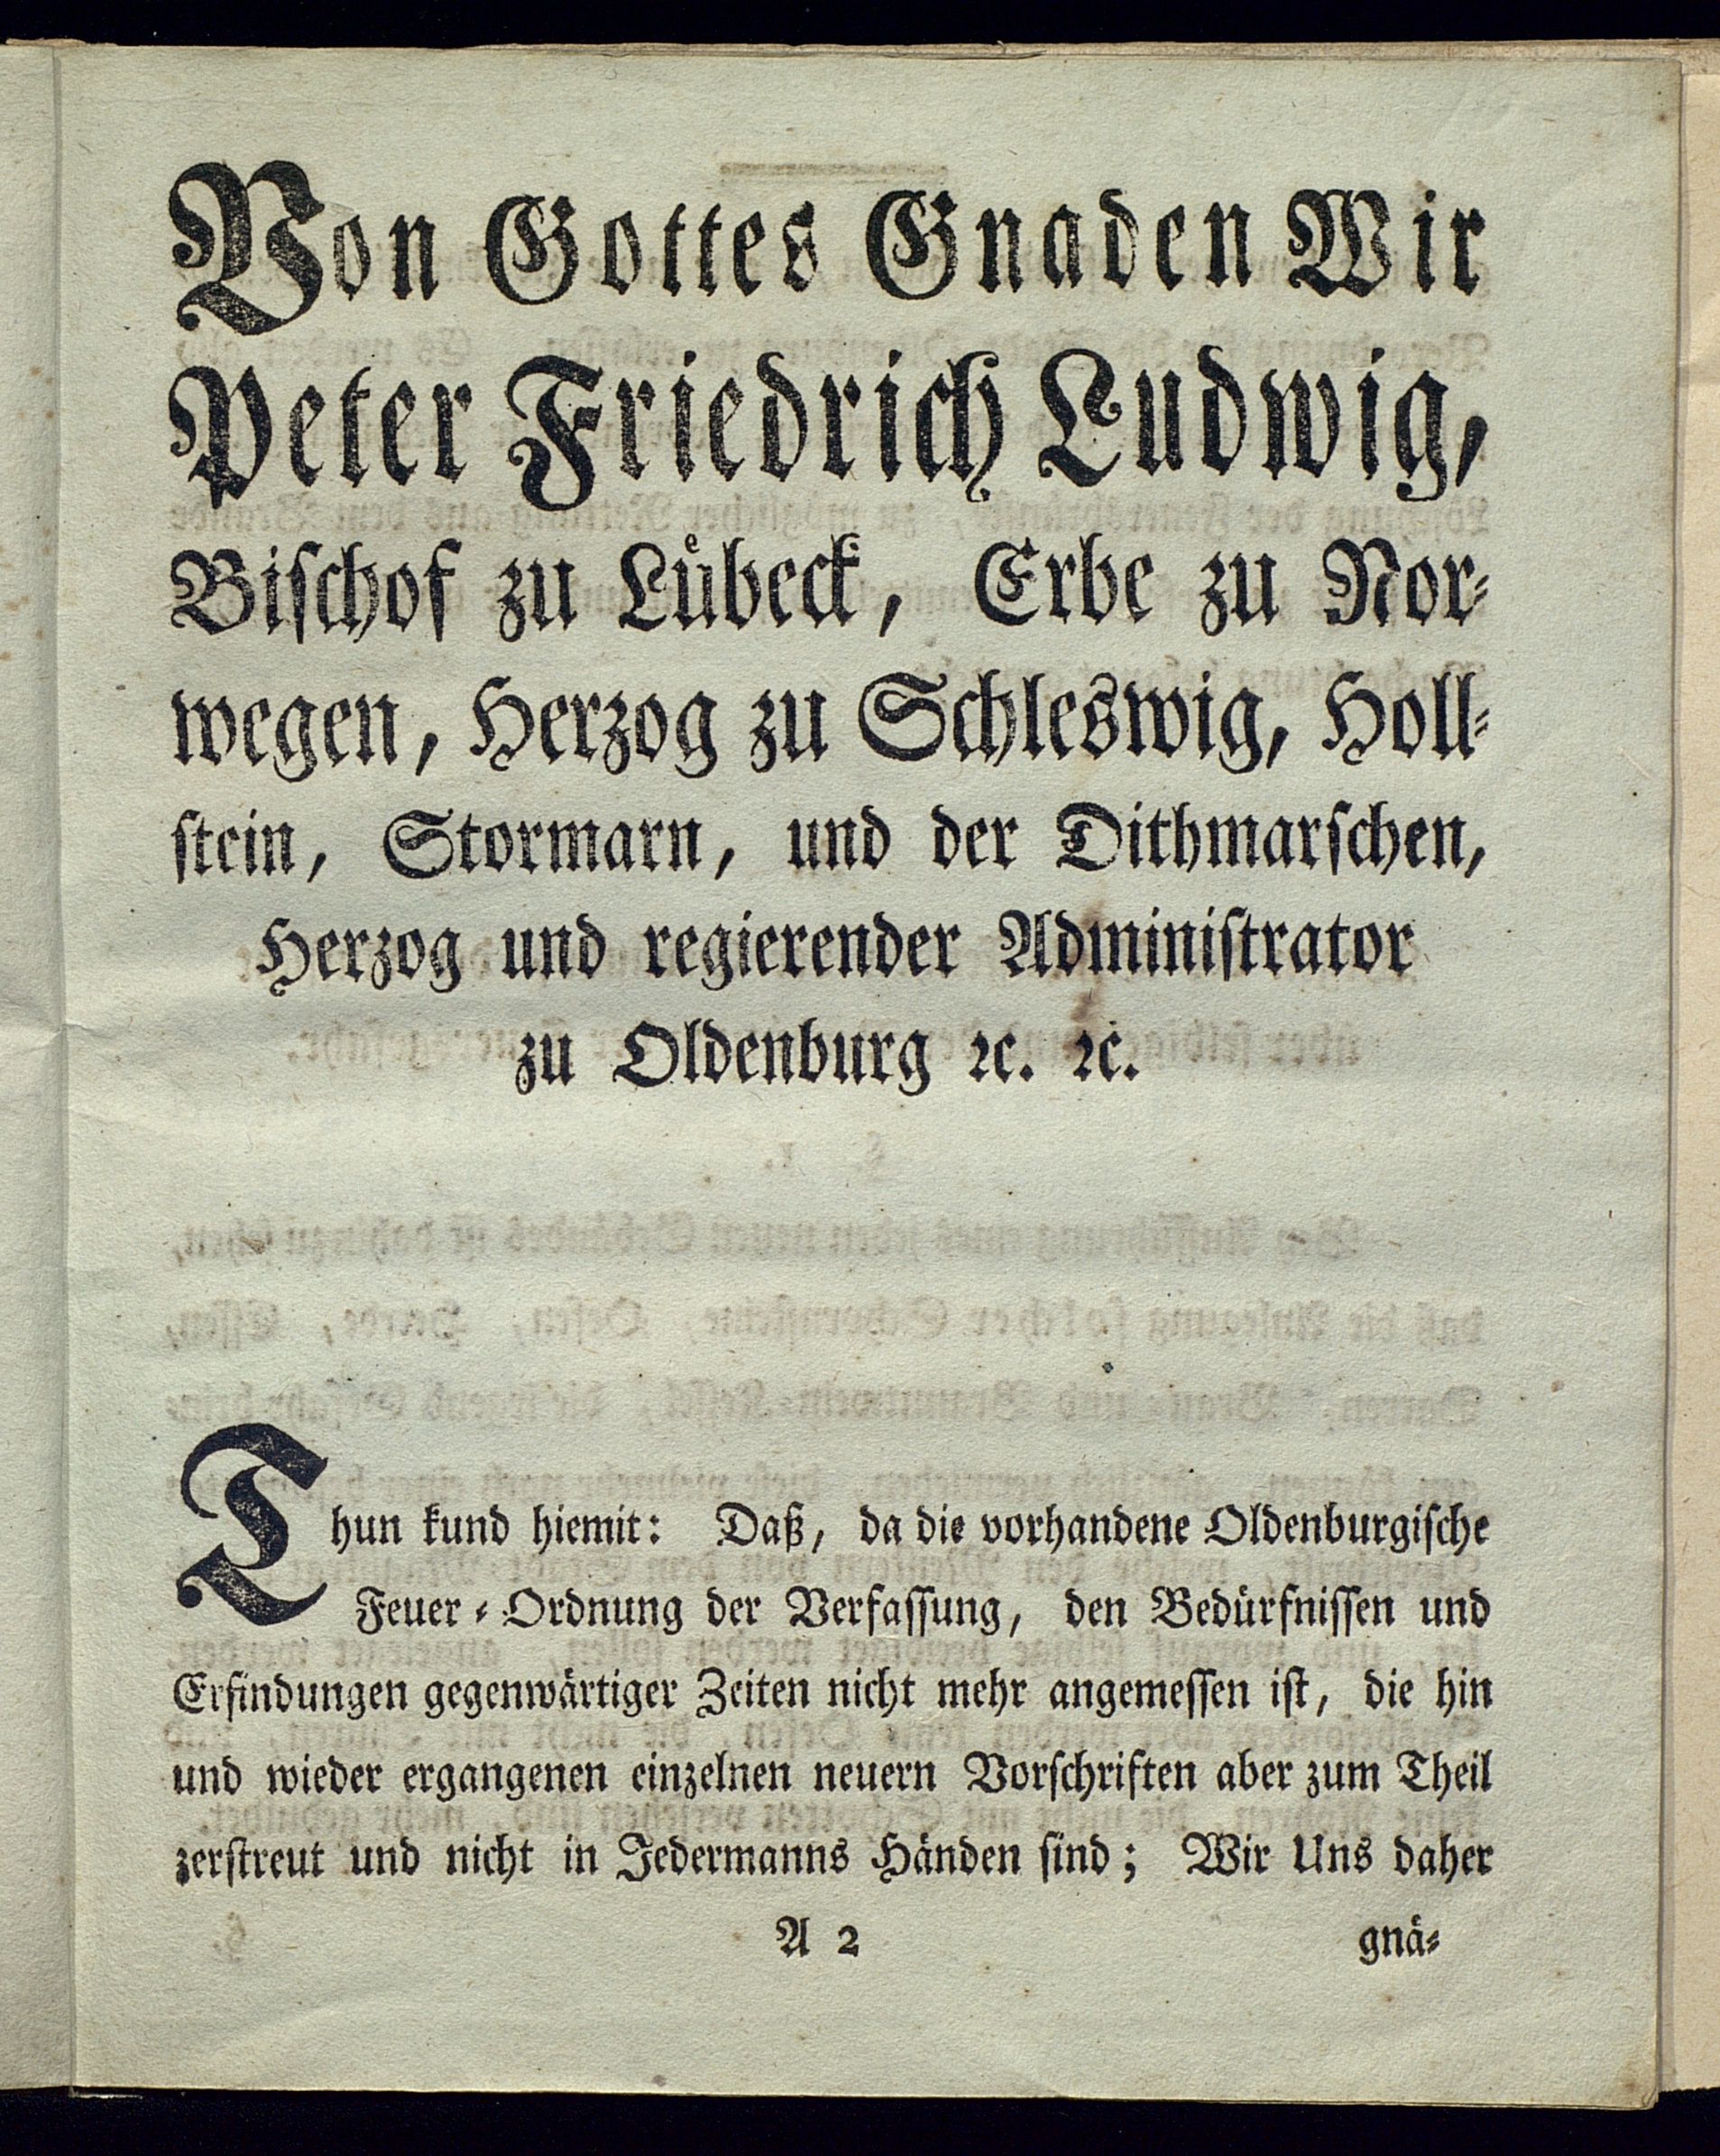 Von Gottes Gnaden Wir
Peter Friedrich Ludwig,
Biſchof zu Luͤbeck, Erbe zu Nor⸗
wegen, Herzog zu Schleswig, Holl⸗
ſtein, Stormarn, und der Dithmarſchen,
Herzog und regierender Adminiſtrator
zu Oldenburg ꝛc. ꝛc.
Thun kund hiemit: Daß, da die vorhandene Oldenburgiſche
Feuer⸗Ordnung der Verfaſſung, den Bedürfniſſen und
Erfindungen gegenwärtiger Zeiten nicht mehr angemeſſen iſt, die hin
und wieder ergangenen einzelnen neuern Vorſchriften aber zum Theil
zerſtreut und nicht in Jedermanns Händen ſind; Wir Uns daher
A 2 gnä⸗